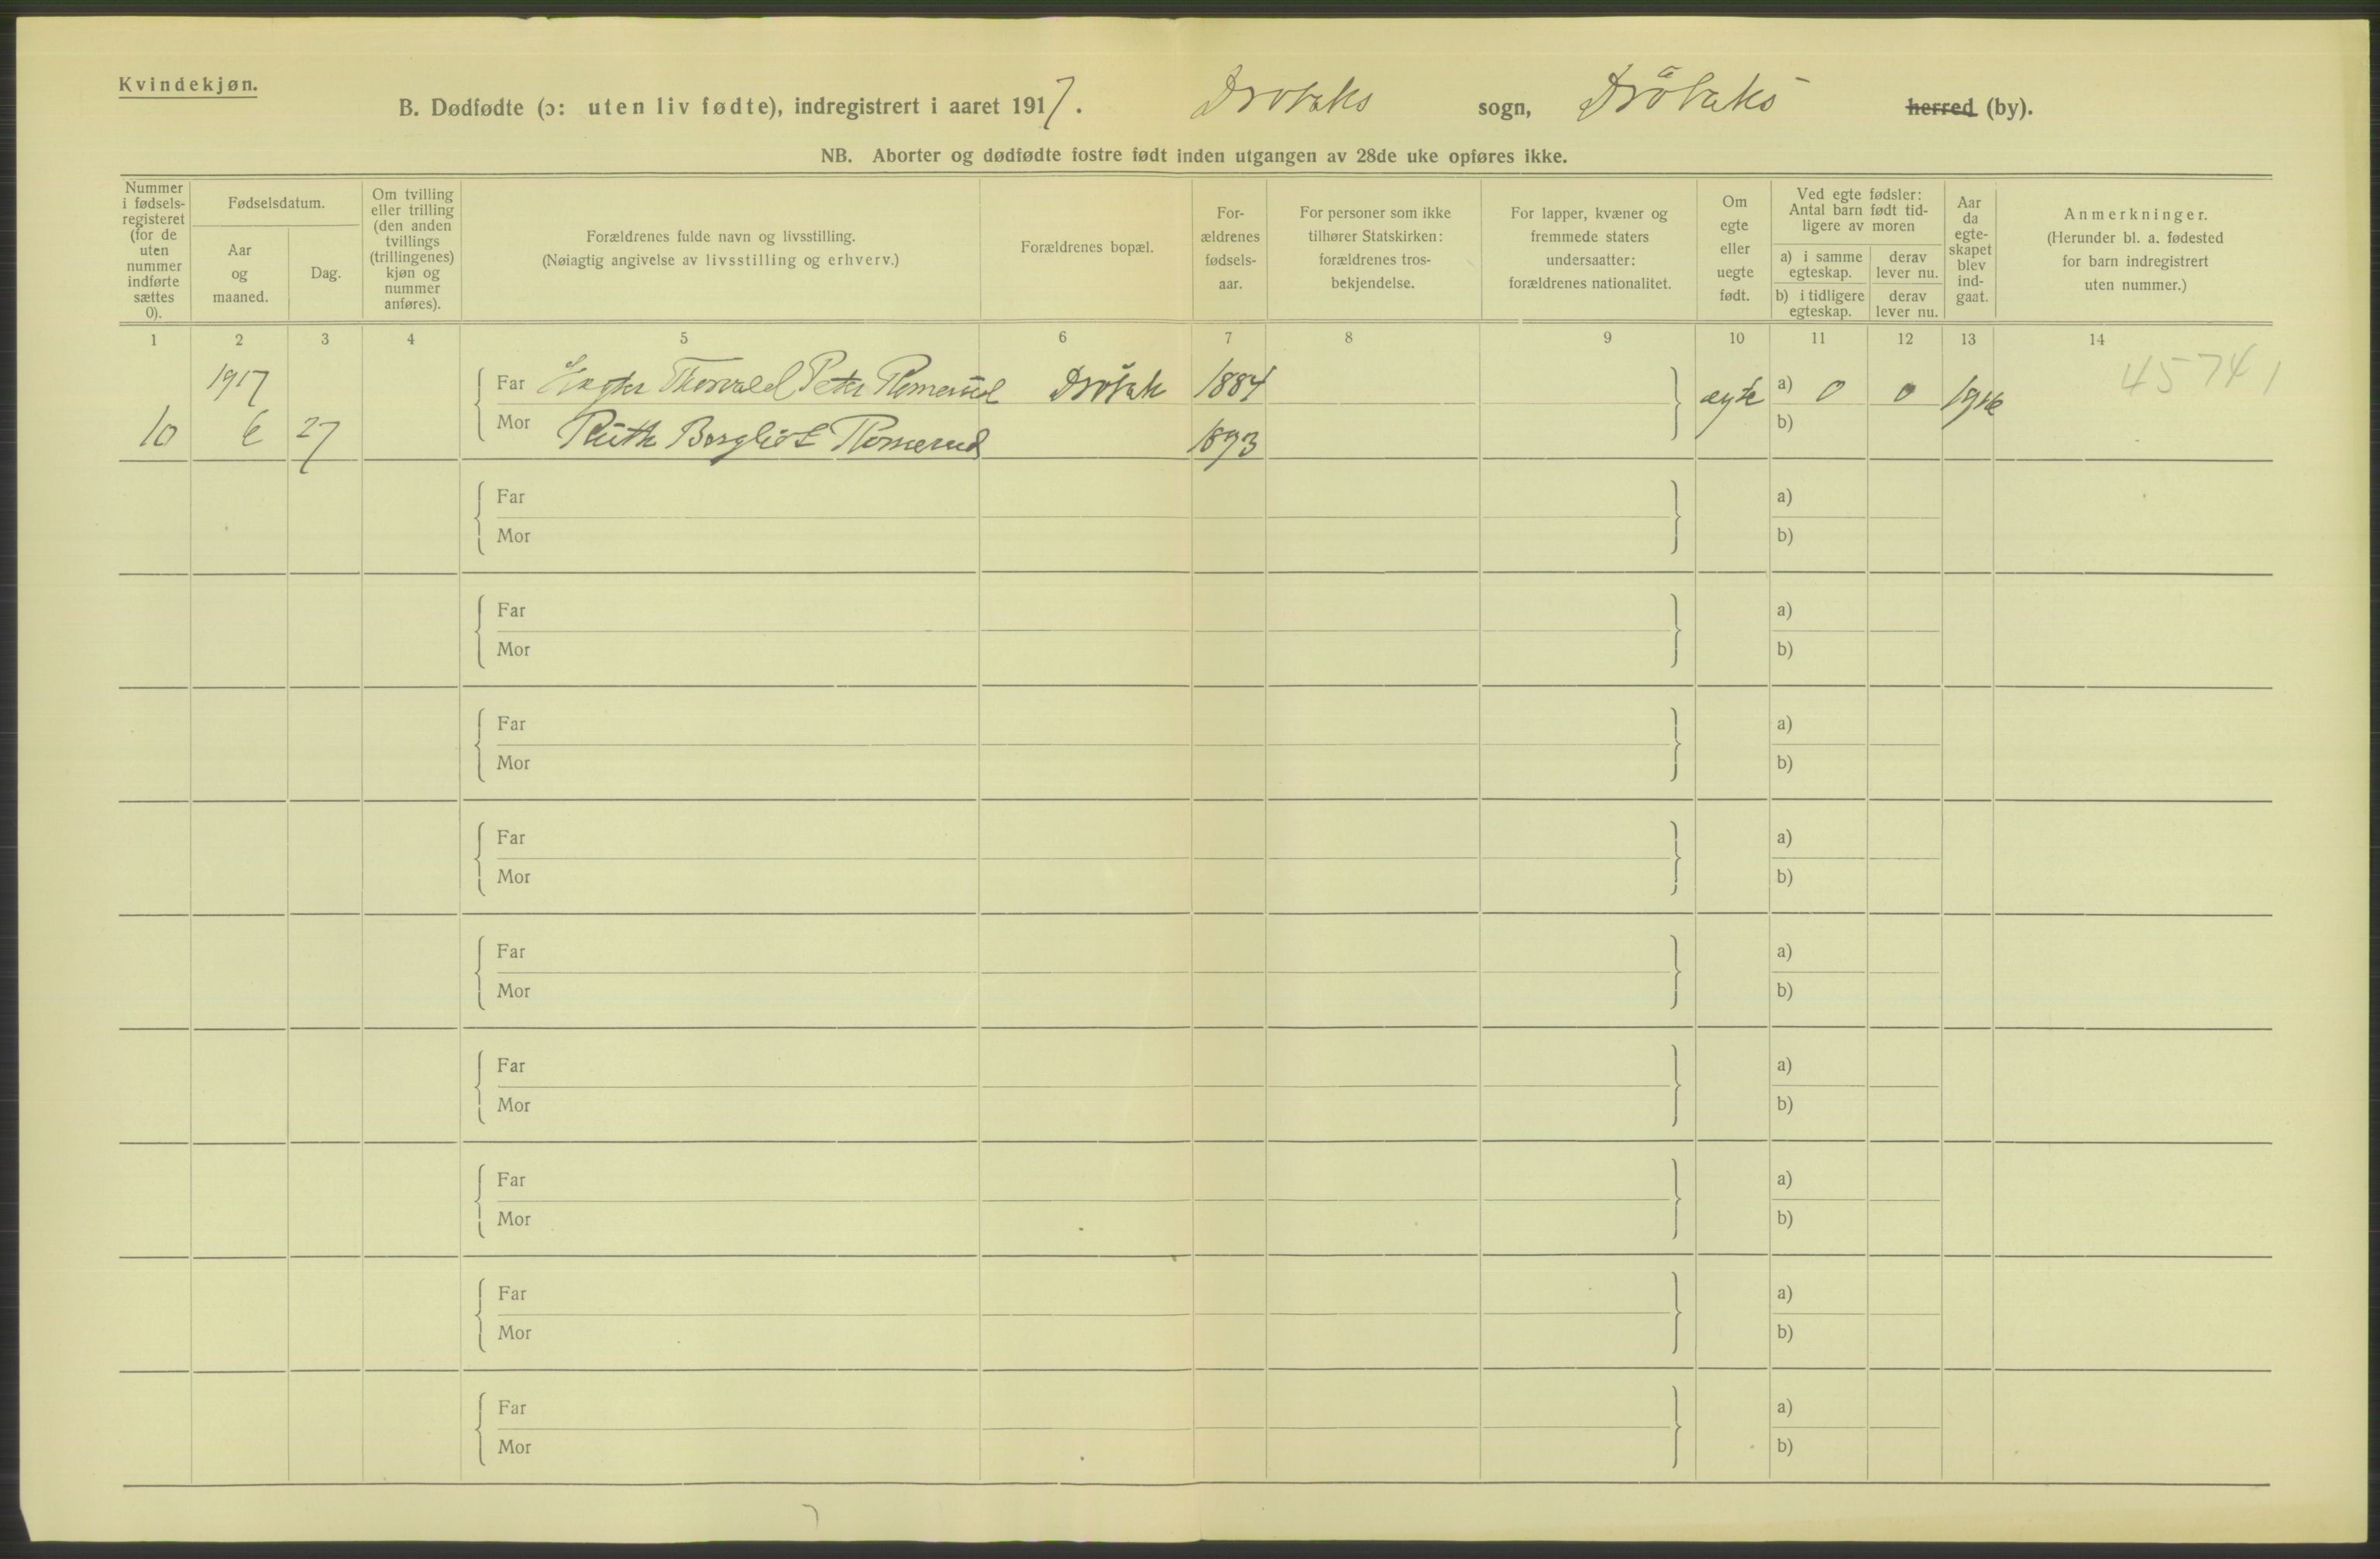 Kvindekjøn.
B. Dødfødte (ɔ: uten liv fødte), indregistrert i aaret 1917. Drøbaks sogn, Drøbaks herred (by).
NB. Aborter og dødfødte fostre født inden utgangen av 28de uke opføres ikke.
Nummer i fødsels-registeret (for de uten nummer indførte sættes 0).
Fødselsdatum.
Aar og maaned.
Dag.
Om tvilling eller trilling (den anden tvillings (trillingenes) kjøn og nummer anføres).
Forældrenes fulde navn og livsstilling.
(Nøiagtig angivelse av livsstilling og erhverv.)
Forældrenes bopæl.
For-ældrenes fødsels-aar.
For personer som ikke tilhører Statskirken: forældrenes tros-bekjendelse.
For lapper, kvæner og fremmede staters undersaatter: forældrenes nationalitet.
Om egte eller uegte født.
Ved egte fødsler: Antal barn født tid-ligere av moren
a) i samme egteskap.
derav lever nu.
b) i tidligere egteskap.
derav lever nu.
Aar da egte-skapet blev ind-gaat.
Anmerkninger.
(Herunder bl. a. fødested for barn indregistrert uten nummer.)
1 2 3 4 5 6 7 8 9 10 11 12 13 14
1917 Far Thorvald Peter Romerud Drøbak 1884 egte a) 0 0 1916 45741
10 6 27 Mor Ruth Borgliot Romerud 1893 b)
Far a)
Mor b)
Far a)
Mor b)
Far a)
Mor b)
Far a)
Mor b)
Far a)
Mor b)
Far a)
Mor b)
Far a)
Mor b)
Far a)
Mor b)
Far a)
Mor b)